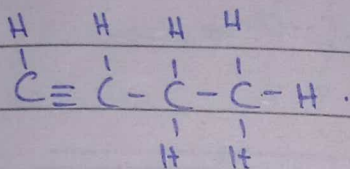 H H H H
C ≡ C - C - C - H .
H H